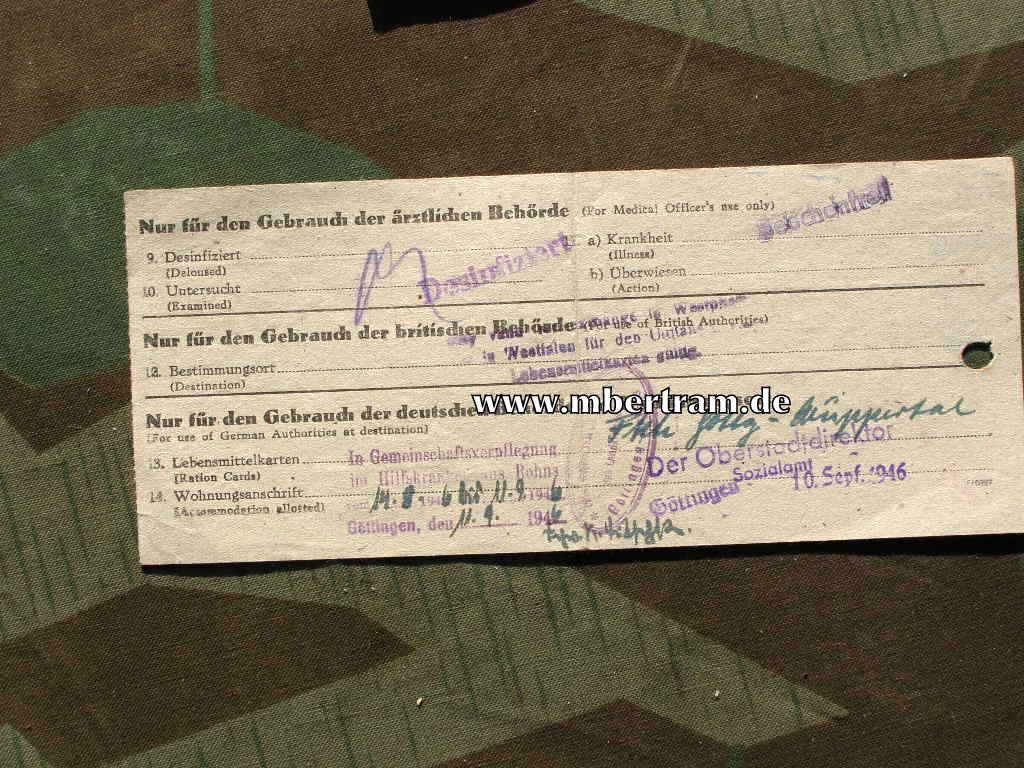 Nur für den Gebrauch der ärztlichen Behörde (For Medical Officer's use only)
9. Desinfiziert
(Deloused)
Desinfiziert
10. Untersucht
(Examined)
a) Krankheit
(Illness)
b) Überwiesen
(Action)
Nur für den Gebrauch der britischen Behörde (For use of British Authorities)
in Westfalen für den
Lebensmittelkarten
12. Bestimmungsort
(Destination)
www.mbertram.de
Nur für den Gebrauch der deutschen
(For use of German Authorities at destination)
13. Lebensmittelkarten
(Ration Cards)
In Gemeinschaftsverpflegung
im Hilfskrankenhaus Rohns
14.8 1946 bis 11.9. 1946
Göttingen, den 11.9. 1946
14. Wohnungsanschrift
(Accommodation allotted)
Göttingen
Der Oberstadtdirektor
Sozialamt
Göttingen 10. Sept. 1946